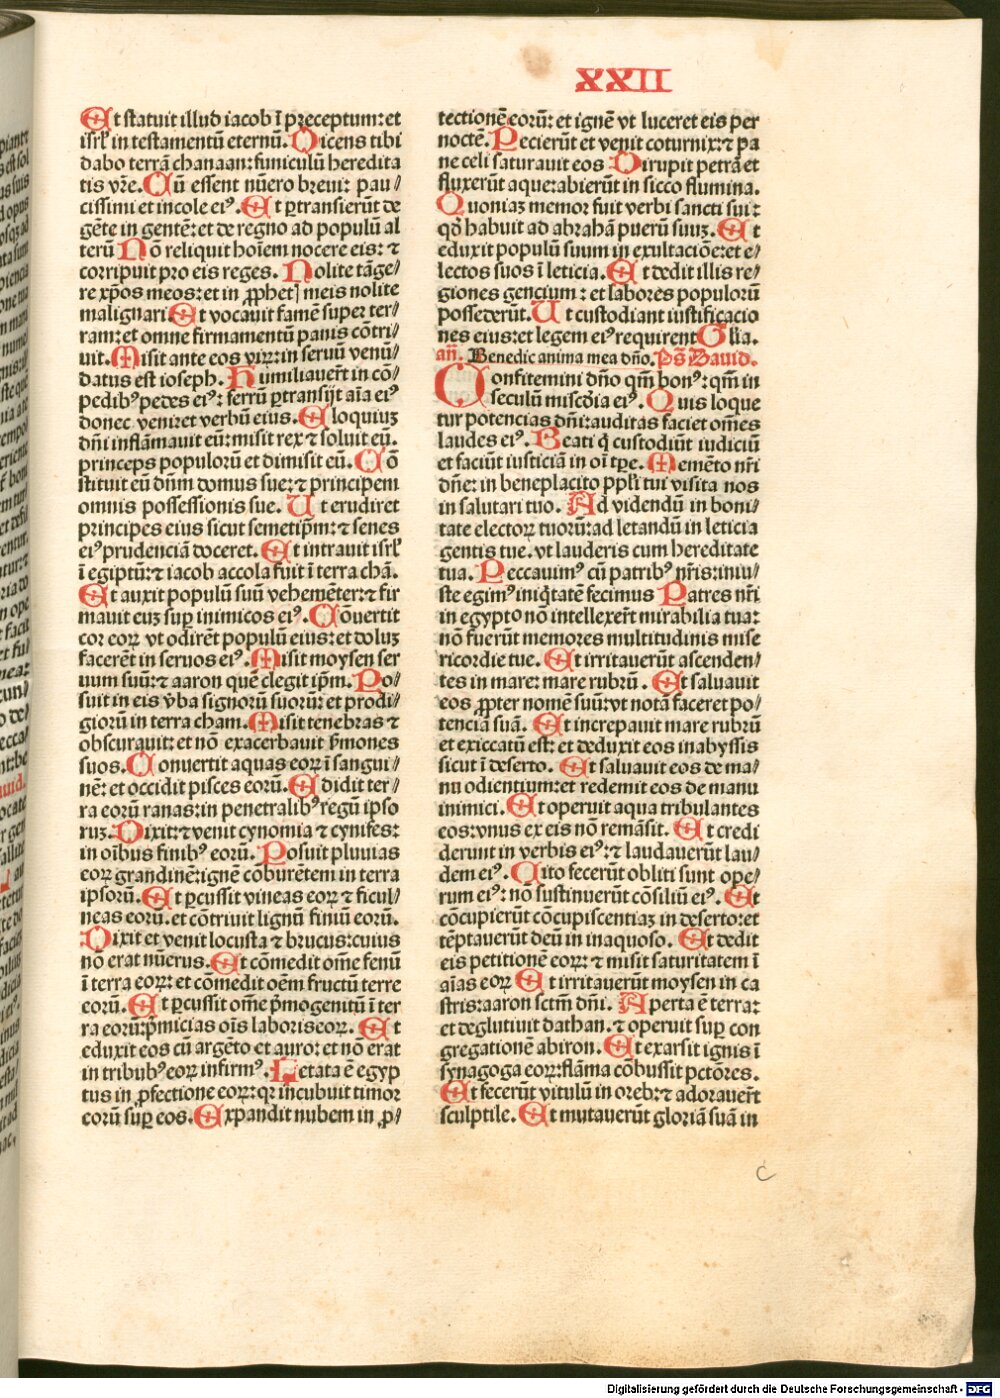 XXII
Et statuit illud iacob ī p̄ceptum: et
isrl̄ in testamentū eternū. Dicens tibi
dabo terrā chanaan: funiculū heredita
tis vr̄e. Cū essent nūero breui: pau⸗
cissimi et incole ei⁹. Et ꝑtransierūt de
gēte in gentē: et de regno ad populū al
terū Nō reliquit hoīem nocere eis: ⁊
corripuit pro eis reges. Nolite tāge⸗
re xp̄os meos: et in ꝓphet] meis nolite
malignari. Et vocauit famē super ter⸗
ram: et omne firmamentū panis cōtri⸗
uit. Misit ante eos viꝝ: in seruū venū⸗
datus est ioseph. Humiliauer̄t in cō⸗
pedib⁹ pedes ei⁹: ferrū ꝑtransijt aīa ei⁹
donec veniret verbū eius. Eloquiuꝫ
dn̄i inflāmauit eū: misit rex ⁊ soluit eū.
princeps populorū et dimisit eū. Cō
stituit eū dn̄m domus sue: ⁊ principem
omnis possessionis sue. Ut erudiret
principes eius sicut semetip̄m: ⁊ senes
ei⁹ prudenciā doceret. Et intrauit isrl̄
ī egiptū: ⁊ iacob accola fuit ī terra chā.
Et auxit populū suū vehemēter: ⁊ fir
mauit euꝫ suꝑ inimicos ei⁹. Cōuertit
cor eoꝝ vt odirēt populū eius: et doluꝫ
facerēt in seruos ei⁹. Misit moysen ser
uum suū: ⁊ aaron quē elegit ip̄m. Po⸗
suit in eis v̄ba signorū suorū: et prodi⸗
giorū in terra cham. Misit tenebras ⁊
obscurauit: et nō exacerbauit p̄mones
suos. Conuertit aquas eoꝝ ī sangui⸗
nē: et occidit pisces eorū. Edidit ter⸗
ra eorū ranas: in penetralib⁹ regū ipso
ruꝫ. Dixit: ⁊ venit cynomia ⁊ cynifes:
in oībus finib⁹ eorū. Posuit pluuias
eoꝝ grandinē: ignē cōburētem in terra
ipsorū. Et ꝑcussit vineas eoꝝ ⁊ ficul⸗
neas eorū. et cōtriuit lignū finiū eorū.
Dixit et venit locusta ⁊ brucus: cuius
nō erat nūerus. Et cōmedit om̄e fenū
ī terra eoꝝ: et cōmedit oēm fructū terre
eorū. Et ꝑcussit om̄e p̄mogenitū ī ter
ra eorū: p̄micias oīs laboris eoꝝ. Et
eduxit eos cū argēto et auro: et nō erat
in tribub⁹ eoꝝ infirm⁹. Letata ē egyp
tus in ꝓfectione eoꝝ: qꝛ incubuit timor
eorū suꝑ eos. Expandit nubem in ꝓ⸗
tectionē eorū: et ignē vt luceret eis per
noctē. Pecierūt et venit coturnix: ⁊ pa
ne celi saturauit eos Dirupit petrā et
fluxerūt aque: abierūt in sicco flumina.
Quoniaꝫ memor fuit verbi sancti sui:
qd̄ habuit ad abrahā puerū suuꝫ. Et
eduxit populū suum in exultaciōe: et e⸗
lectos suos ī leticia. Et dedit illis re⸗
giones gencium: et labores populorū
possederūt. Ut custodiant iustificacio
nes eius: et legem ei⁹ requirent Glīa.
an̄. Benedic anima mea dn̄o. Ps̄ Dauid.
Confitemini dn̄o qm̄ bon⁹: qm̄ in
seculū misc̄dia ei⁹. Quis loque
tur potencias dn̄i: auditas faciet om̄es
laudes ei⁹. Beati q̄ custodiūt iudiciū
et faciūt iusticiā in oī tp̄re. Memēto nr̄i
dn̄e: in beneplacito ppl̄i tui visita nos
in salutari tuo. Ad videndū in boni⸗
tate electoꝝ tuorū: ad letandū in leticia
gentis tue. vt lauderis cum hereditate
tua. Peccauim⁹ cū patrib⁹ nr̄is: iniu⸗
ste egim⁹ iniq̄tatē fecimus Patres nr̄i
in egypto nō intellexer̄t mirabilia tua:
nō fuerūt memores multitudinis mise
ricordie tue. Et irritauerūt ascenden⸗
tes in mare: mare rubrū. Et saluauit
eos ꝓpter nomē suū: vt notā faceret po⸗
tenciā suā. Et increpauit mare rubrū
et exiccatū est: et deduxit eos in abyssis
sicut ī deserto. Et saluauit eos de ma⸗
nu odientium: et redemit eos de manu
inimici. Et operuit aqua tribulantes
eos: vnus ex eis nō remāsit. Et credi
derunt in verbis ei⁹: ⁊ laudauerūt lau⸗
dem ei⁹. Cito fecerūt obliti sunt ope⸗
rum ei⁹: nō sustinuerūt cōsiliū ei⁹. Et
cōcupierūt cōcupiscentiaꝫ in deserto: et
tēptauerūt deū in inaquoso. Et dedit
eis petitionē eoꝝ: ⁊ misit saturitatem ī
aīas eoꝝ Et irritauerūt moysen in ca
stris: aaron sctm̄ dn̄i. Aperta ē terra:
et deglutiuit dathan. ⁊ operuit suꝑ con
gregationē abiron. Et exarsit ignis ī
synagoga eoꝝ: flāma cōbussit pctōres.
Et fecerūt vitulū in oreb: ⁊ adorauer̄t
sculptile. Et mutauerūt gloriā suā in
c
Digitalisierung gefördert durch die Deutsche Forschungsgemeinschaft - DFG